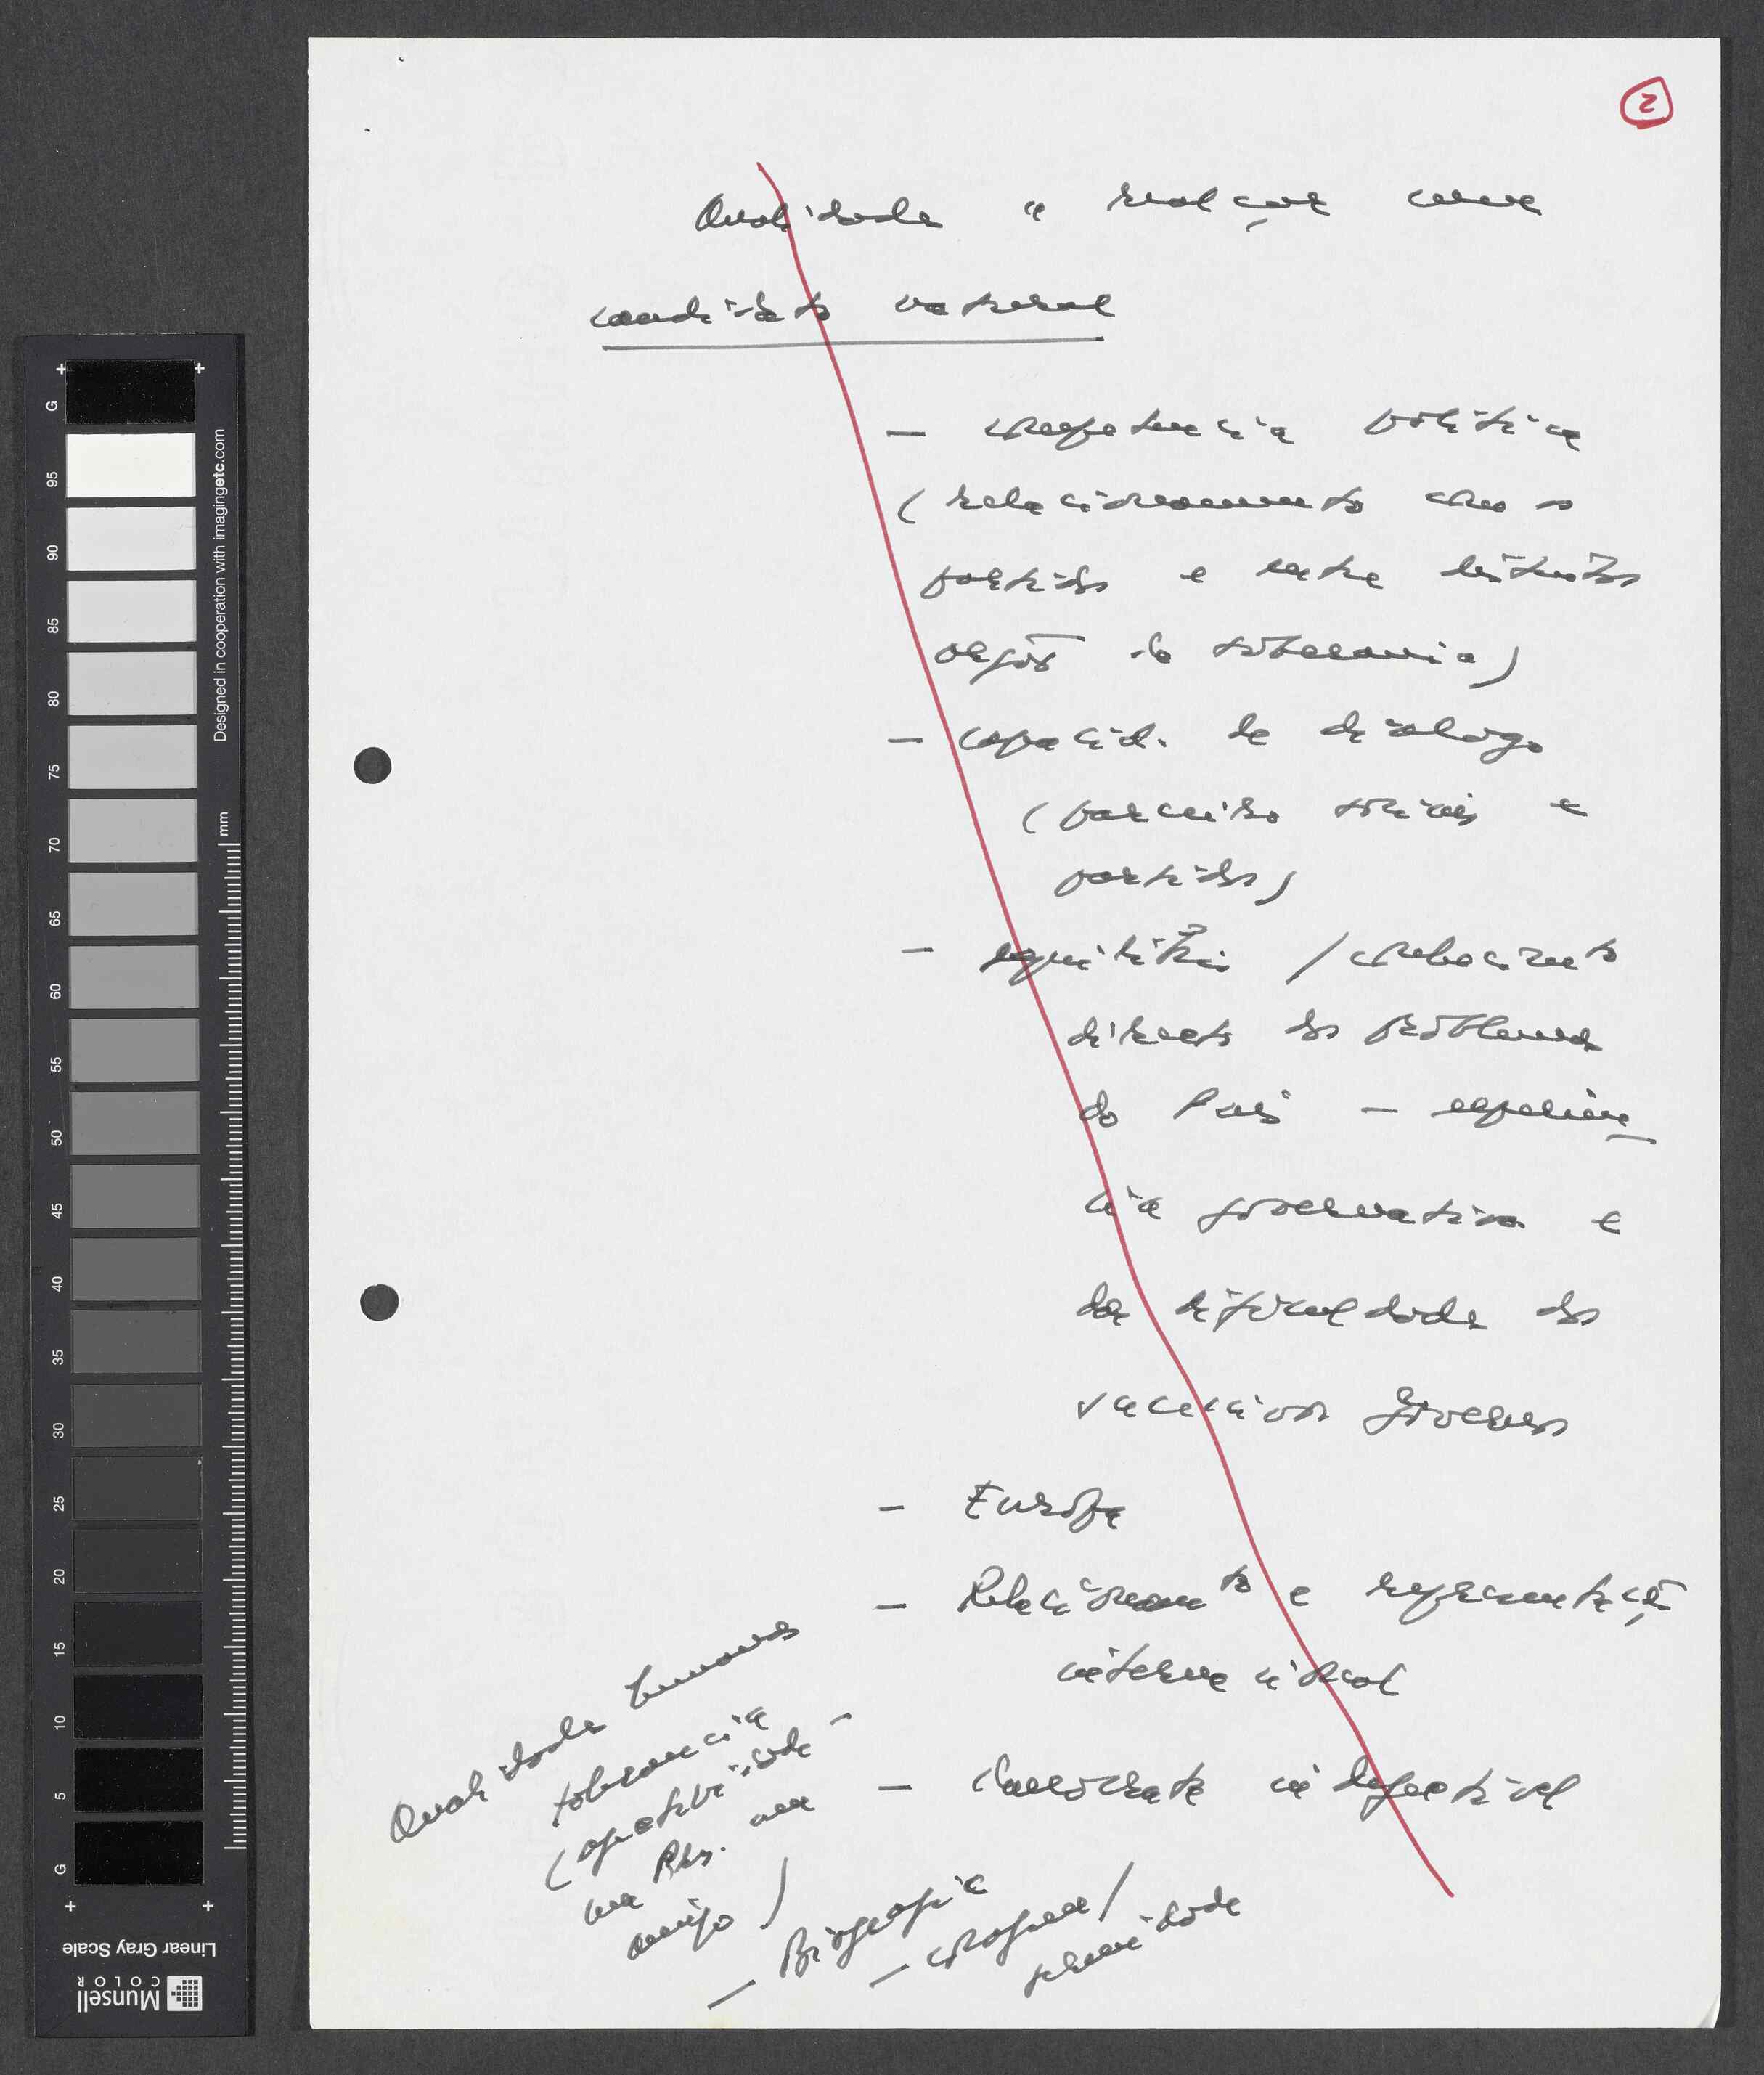 2
Qualidades a realçar como
candidato natural
- competência política
(relacionamento com os
partidos e entre distintos
orgãos de soberania)
- capacid. de diálogo
(parceiros sociais e
partidos)
- equilíbrio / conhecimento
directo dos problemas
do País - experiên_
cia governativa e
das dificuldades dos
sucessivos Governos
- Europa
- Relacionamto e representação
internacional
- Democrata indefectível
Qualidades humanas
tolerância
(
um Pres. um
amigo)
- Biografia
- coragem /
serenidade
G
95
90
85
80
75
70
65
60
55
50
45
40
35
30
25
20
15
10
5
G
mm
Designed in cooperation with imagingetc.com
Linear Gray Scale
Munsell
COLOR